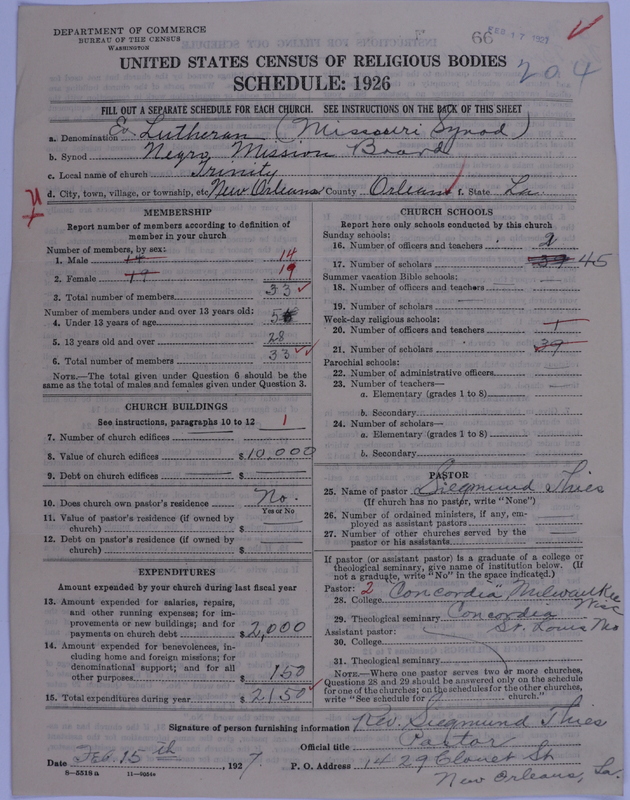 DEPARTMENT OF COMMERCE
BUREAU OF THE CENSUS
WASHINGTON
66
FEB 17 1927
204
UNITED STATES CENSUS OF RELIGIOUS BODIES
SCHEDULE: 1926
FILL OUT A SEPARATE SCHEDULE FOR EACH CHURCH. SEE INSTRUCTIONS ON THE BACK OF THIS SHEET
a. Denomination Ev. Lutheran (Missouri Synod)
b. Synod Negro Mission Board
c. Local name of church Trinity
d. City, town, village, or township, etc New Orleans County Orleans f. State La.
MEMBERSHIP
Report number of members according to definition of
member in your church
Number of members, by sex:
1. Male 14 14
2. Female 19 19
3. Total number of members 33
Number of members under and over 13 years old:
4. Under 13 years of age 5
5. 13 years old and over 28
6. Total number of members 33
NOTE.—The total given under Question 6 should be
same as the total of males and females given under Question 3.
CHURCH BUILDINGS
See instructions, paragraphs 10 to 12 1
7. Number of church edifices
8. Value of church edifices $10,000
9. Debt on church edifices $
10. Does church own pastor's residence No.
Yes or No
11. Value of pastor's residence (if owned by
church) $
12. Debt on pastor's residence (if owned by
church) $
EXPENDITURES
Amount expended by your church during last fiscal year
13. Amount expended for salaries, repairs,
and other running expenses; for im-
provements or new buildings; and for
payments on church debt $2,000
14. Amount expended for benevolences, in-
cluding home and foreign missions; for
denominational support; and for all
other purposes $ 150
15. Total expenditures during year $2150
CHURCH SCHOOLS
Report here only schools conducted by this church
Sunday schools:
16. Number of officers and teachers 2
17. Number of scholars 39 45
Summer vacation Bible schools:
18. Number of officers and teachers
19. Number of scholars
Week-day religious schools:
20. Number of officers and teachers 1
21. Number of scholars 39
Parochial schools:
22. Number of administrative officers
23. Number of teachers—
a. Elementary (grades 1 to 8)
b. Secondary
24. Number of scholars—
a. Elementary (grades 1 to 8)
b. Secondary
PASTOR
25. Name of pastor Siegmund Thies
(If church has no pastor, write "None")
26. Number of ordained ministers, if any, em-
ployed as assistant pastors
27. Number of other churches served by the
pastor or his assistants
If pastor (or assistant pastor) is a graduate of a college or
theological seminary, give name of institution below. (If
not a graduate, write "No" in the space indicated.)
Pastor: 2
28. College Concordia Milwaukee Wisc
29. Theological seminary Concordia
St. Louis Mo
Assistant pastor:
30. College
31. Theological seminary
NOTE.—Where one pastor serves two or more churches,
Questions 28 and 29 should be answered only on the schedule
for one of the churches; on the schedules for the other churches,
write "See schedule for church."
Signature of person furnishing information Rev. Siegmund Thies
Official title Pastor
Date Feb. 15th, 1927 P. O. Address 1429 Clouet St
New Orleans, La.
8—5518a 11—9051